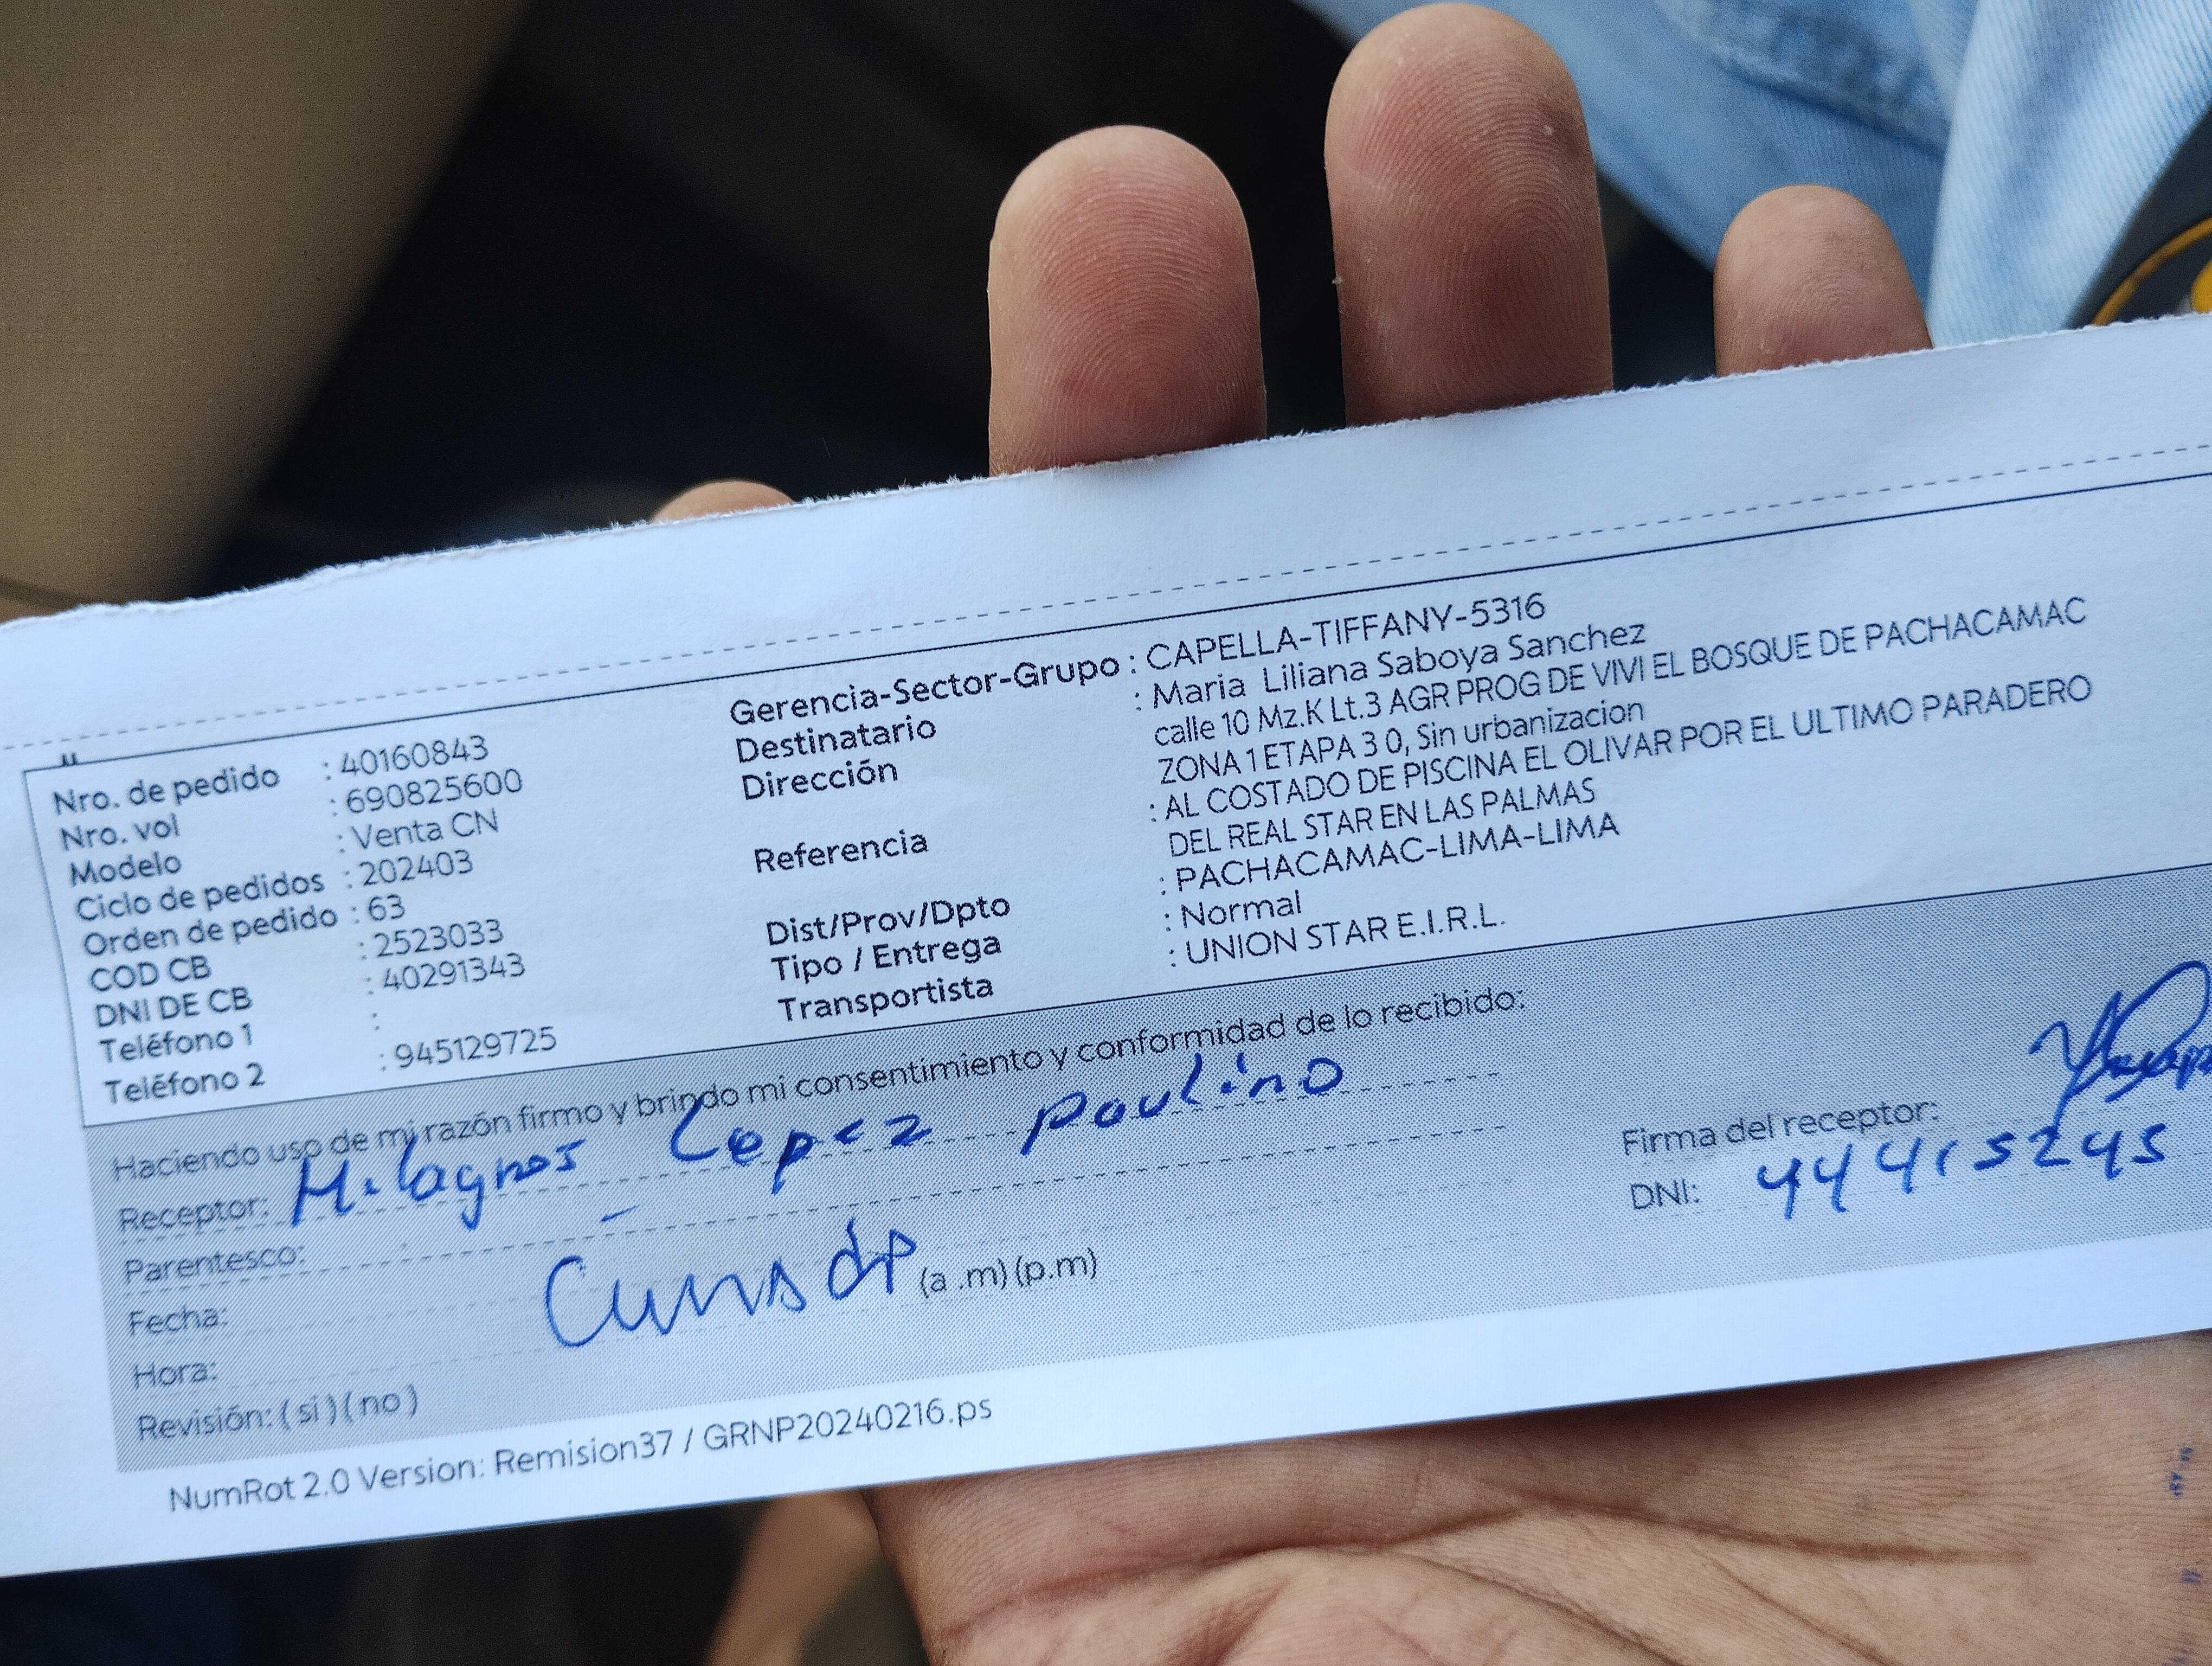 Nro. de pedido : 40160843
Nro. vol : 690825600
Modelo : Venta CN
Ciclo de pedidos : 202403
Orden de pedido : 63
COD CB : 2523033
DNI DE CB : 40291343
Teléfono 1 :
Teléfono 2 : 945129725
Gerencia-Sector-Grupo : CAPELLA-TIFFANY-5316
Destinatario : Maria Liliana Saboya Sanchez
Dirección calle 10 Mz.K Lt.3 AGR PROG DE VIVI EL BOSQUE DE PACHACAMAC
ZONA 1 ETAPA 3 0, Sin urbanizacion
Referencia : AL COSTADO DE PISCINA EL OLIVAR POR EL ULTIMO PARADERO
DEL REAL STAR EN LAS PALMAS
Dist/Prov/Dpto : PACHACAMAC-LIMA-LIMA
Tipo / Entrega : Normal
Transportista : UNION STAR E.I.R.L.
Haciendo uso de mi razón firmo y brindo mi consentimiento y conformidad de lo recibido:
Receptor: Milagros Lopez Paulino
Parentesco:
Fecha:
Hora: (a .m) (p.m)
Revisión: ( si ) ( no )
Firma del receptor:
DNI:
NumRot 2.0 Version: Remision37 / GRNP20240216.ps